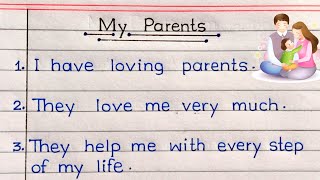 My Parents
1. I have loving parents.
2. They love me very much.
3. They help me with every step
of my life.